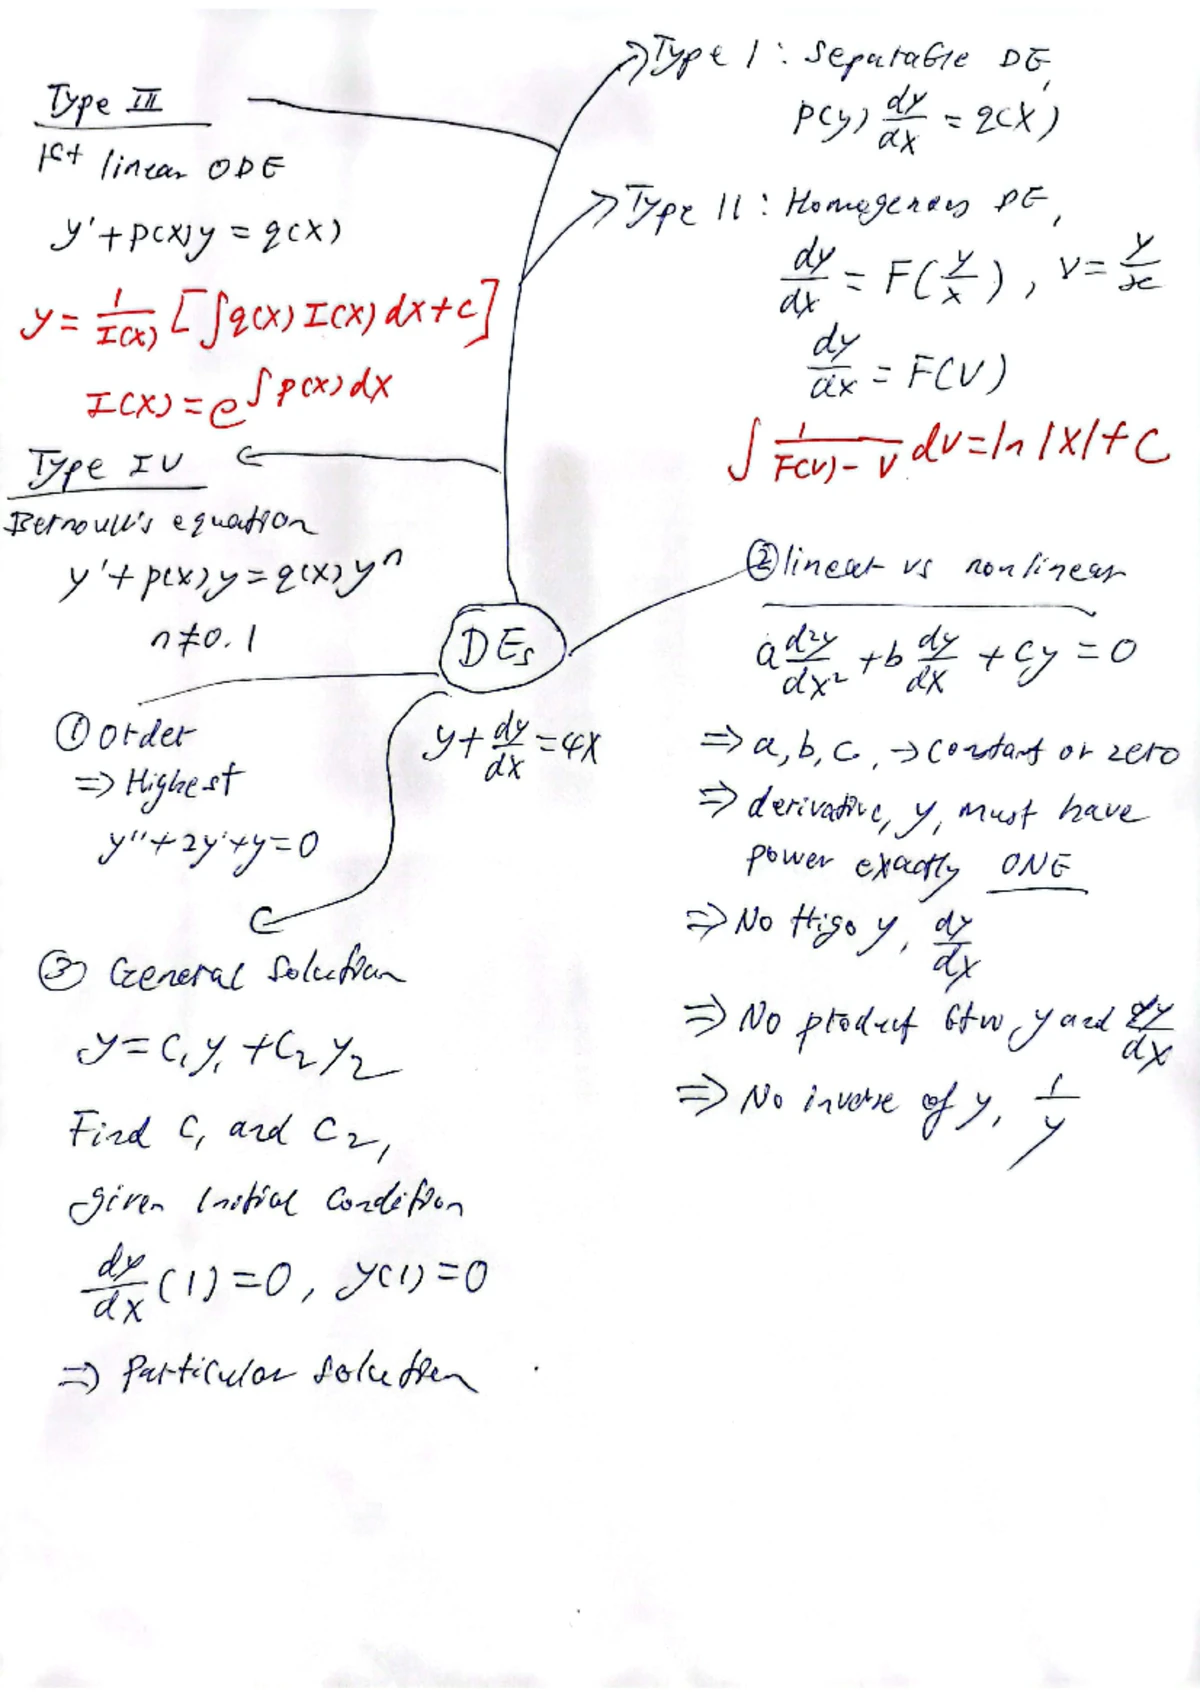 Type I : Separable DE,
p(y) dy/dx = q(x)
Type II : Homogenous DE,
dy/dx = F(y/x), v = y/x
dy/dx = F(v)
∫ 1/(F(v) - v) dv = ln |x| + C
Type III
1st linear ODE
y' + p(x)y = q(x)
y = 1/I(x) [∫q(x) I(x) dx + c]
I(x) = e^∫p(x) dx
Type IV
Bernoulli's equation
y' + p(x)y = q(x)y^n
n ≠ 0. 1
DEs
y + dy/dx = 4x
① Order
⇒ Highest
y'' + 2y' + y = 0
② linear vs nonlinear
a d²y/dx² + b dy/dx + cy = 0
⇒ a, b, c, → constant or zero
⇒ derivative, y, must have
power exactly ONE
⇒ No trigo y, dy/dx
⇒ No product btw y and dy/dx
⇒ No inverse of y, 1/y
③ General Solution
y = c₁y₁ + c₂y₂
Find c₁ and c₂,
given initial condition
dy/dx (1) = 0, y(1) = 0
⇒ Particular solution